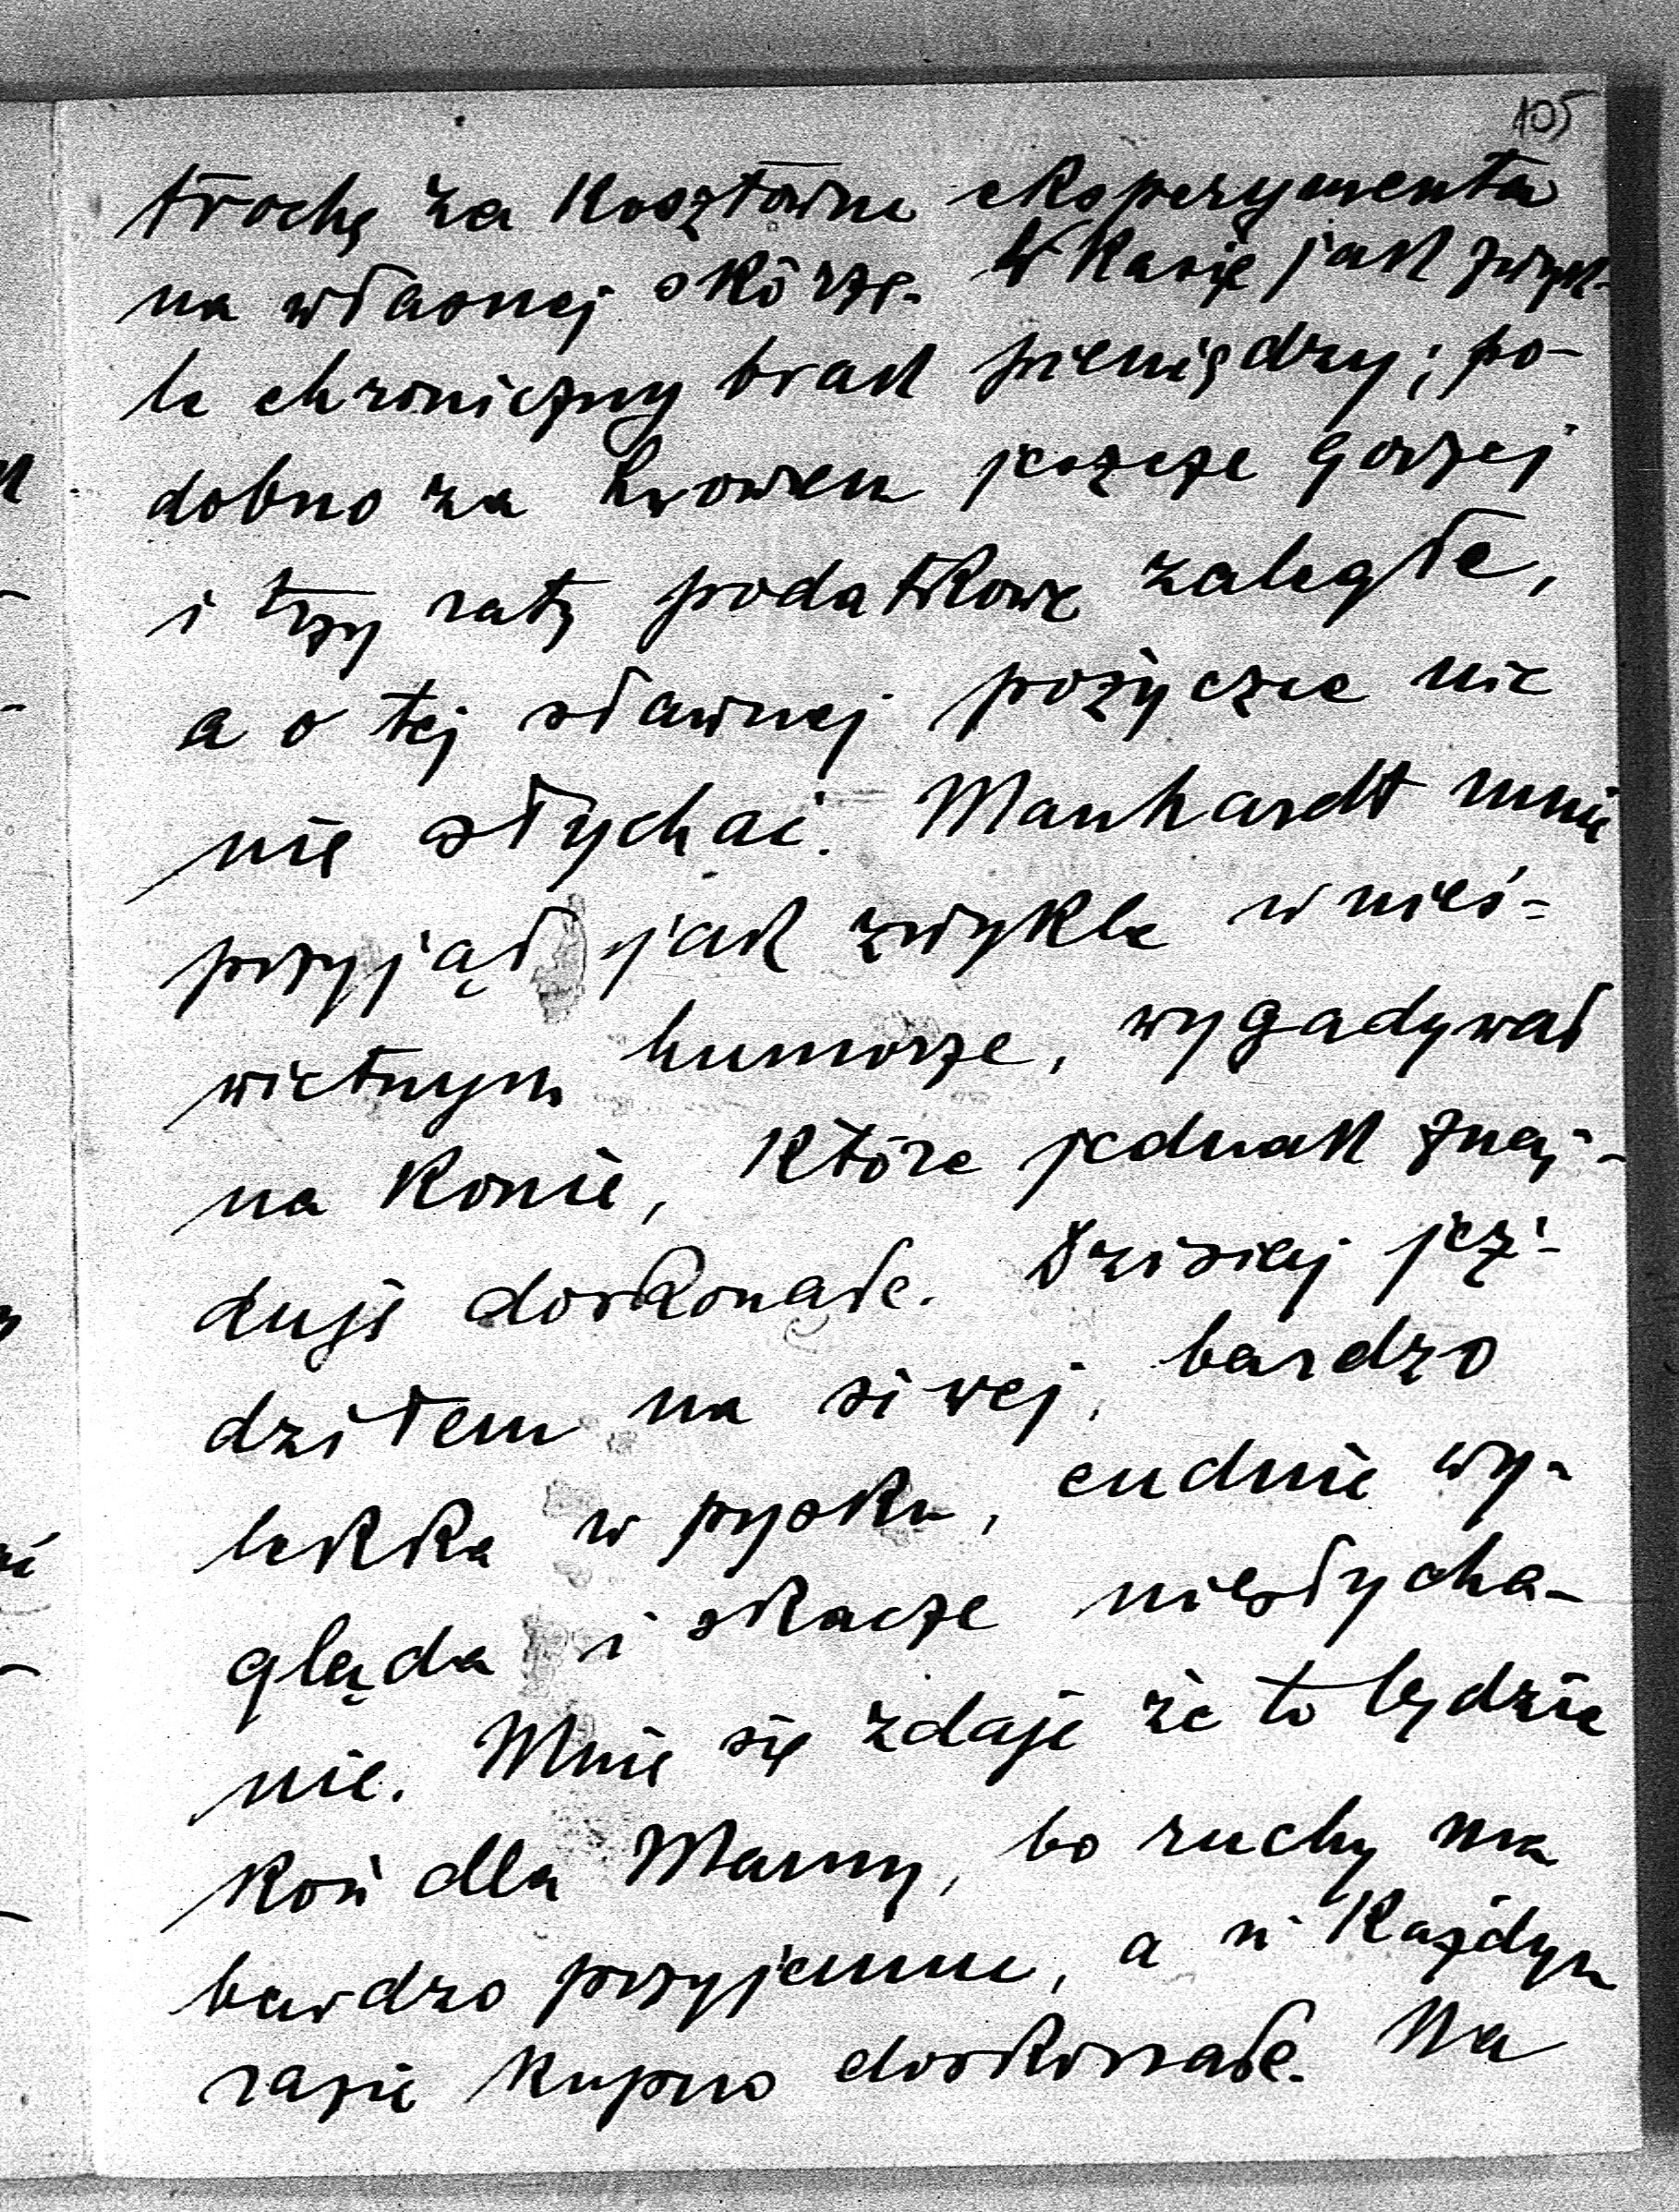 105
trochę za kosztowne eksperymenta
na własnej skórze. W kasie jak zwyk-
le chroniczny brak pieniędzy; po-
dobno za Lwowem jeszcze gorzej
i trzy raty podatkowe zaległe,
a o tej sławnej pożyczce nic
nie słychać. Manhardt mnie
przyjął jak zwykle w nieś-
wietnym humorze, wygadywał
na konie, które jednak znaj-
duje doskonałe. Dzisiaj jeź-
dziłem na siwej, bardzo
lekka w pysku, cudnie wy-
gląda i skacze niesłycha-
nie. Mnie się zdaje że to będzie
koń dla Mamy, bo ruchy ma
bardzo przyjemne, a w każdym
razie kupno doskonałe. Na